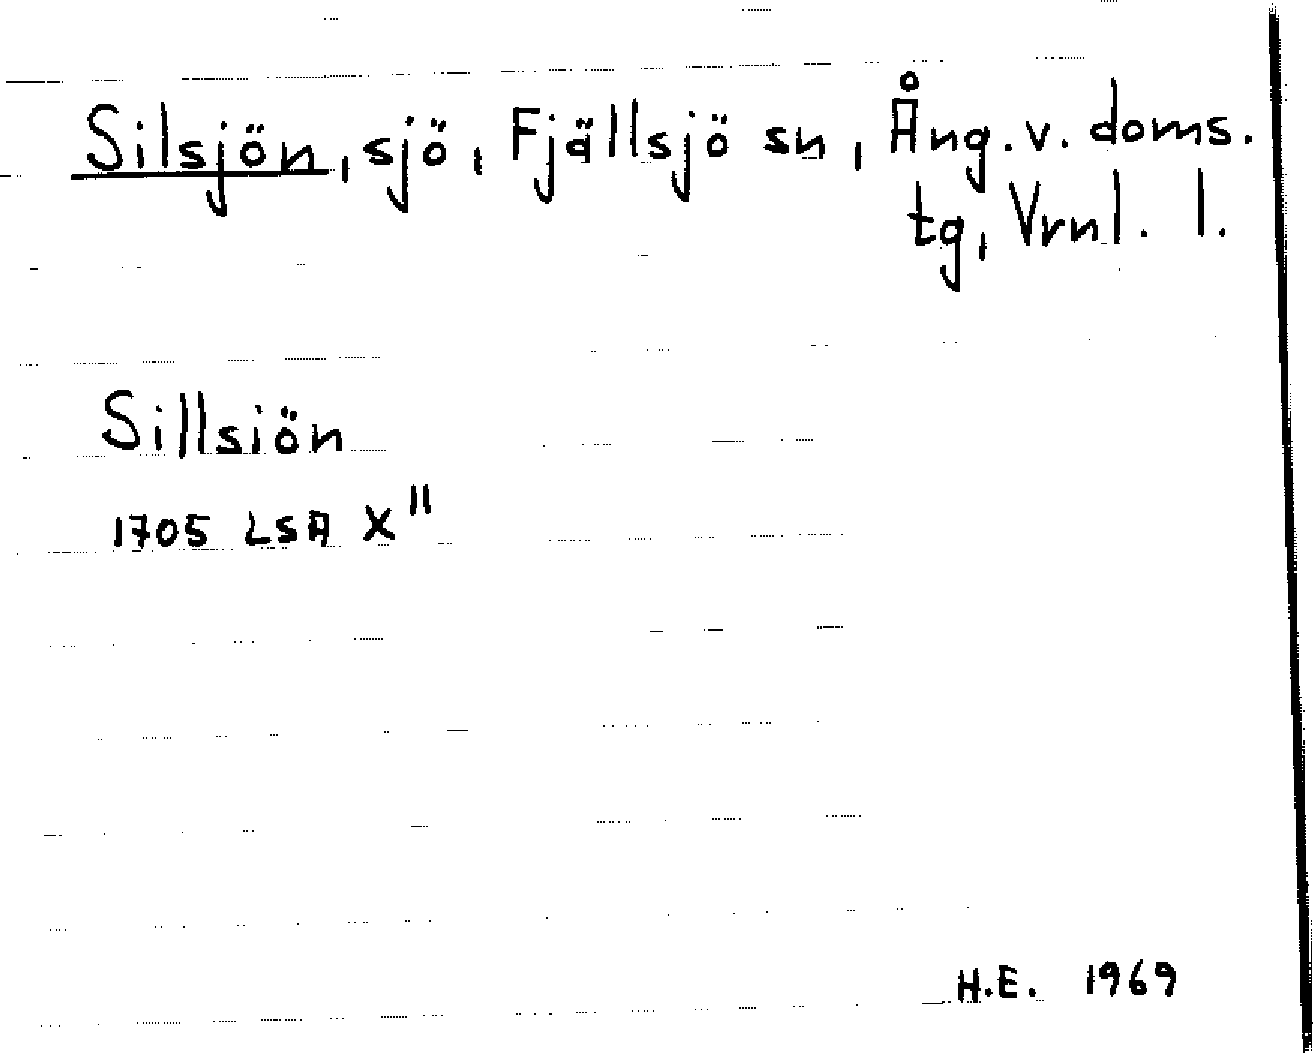 Silsjön, sjö, Fjällsjö sn, Ång. v. doms.
tg, Vrnl. l.
Sillsiön
1705 LSA X"
H.E. 1969